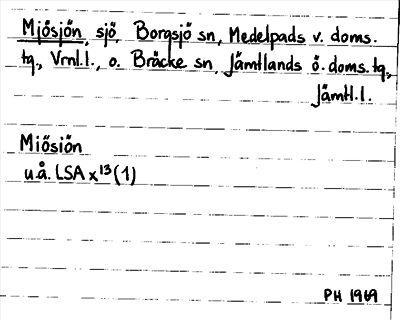 Mjösjön, sjö, Borgsjö sn, Medelpads v. doms.
tg., Vrnl.l., o. Bräcke sn, Jämtlands ö. doms. tg.,
Jämtl.l.
Miösiön
u.å. LSA x¹³(1)
PH 1969